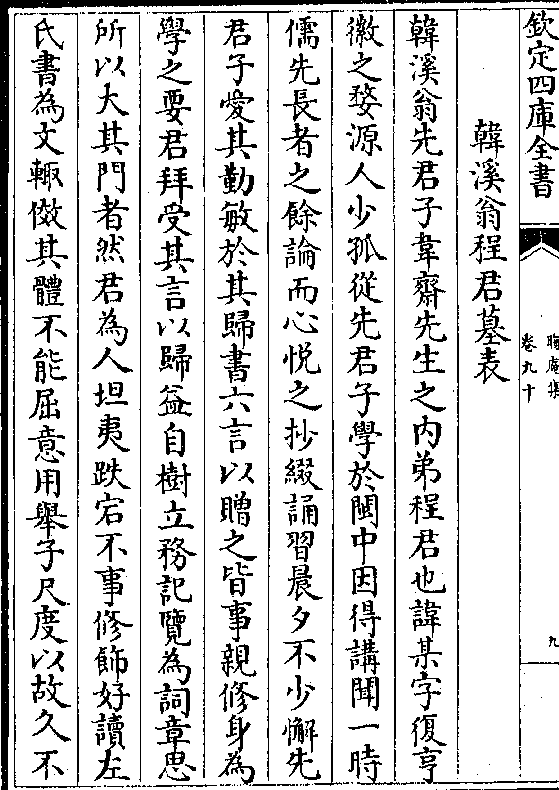 欽定四庫全書
晦庵集
卷九十
九
韓溪翁程君墓表
韓溪翁先君子韋齋先生之内弟程君也諱某字復亨
徽之婺源人少孤從先君子學於閩中因得講聞一時
儒先長者之餘論而心悦之抄綴誦習晨夕不少懈先
君子愛其勤敏於其歸書六言以贈之皆事親修身為
學之要君拜受其言以歸益自樹立務記覽為詞章思
所以大其門者然君為人坦夷跌宕不事修飾好讀左
氏書為文輙倣其體不能屈意用舉子尺度以故久不